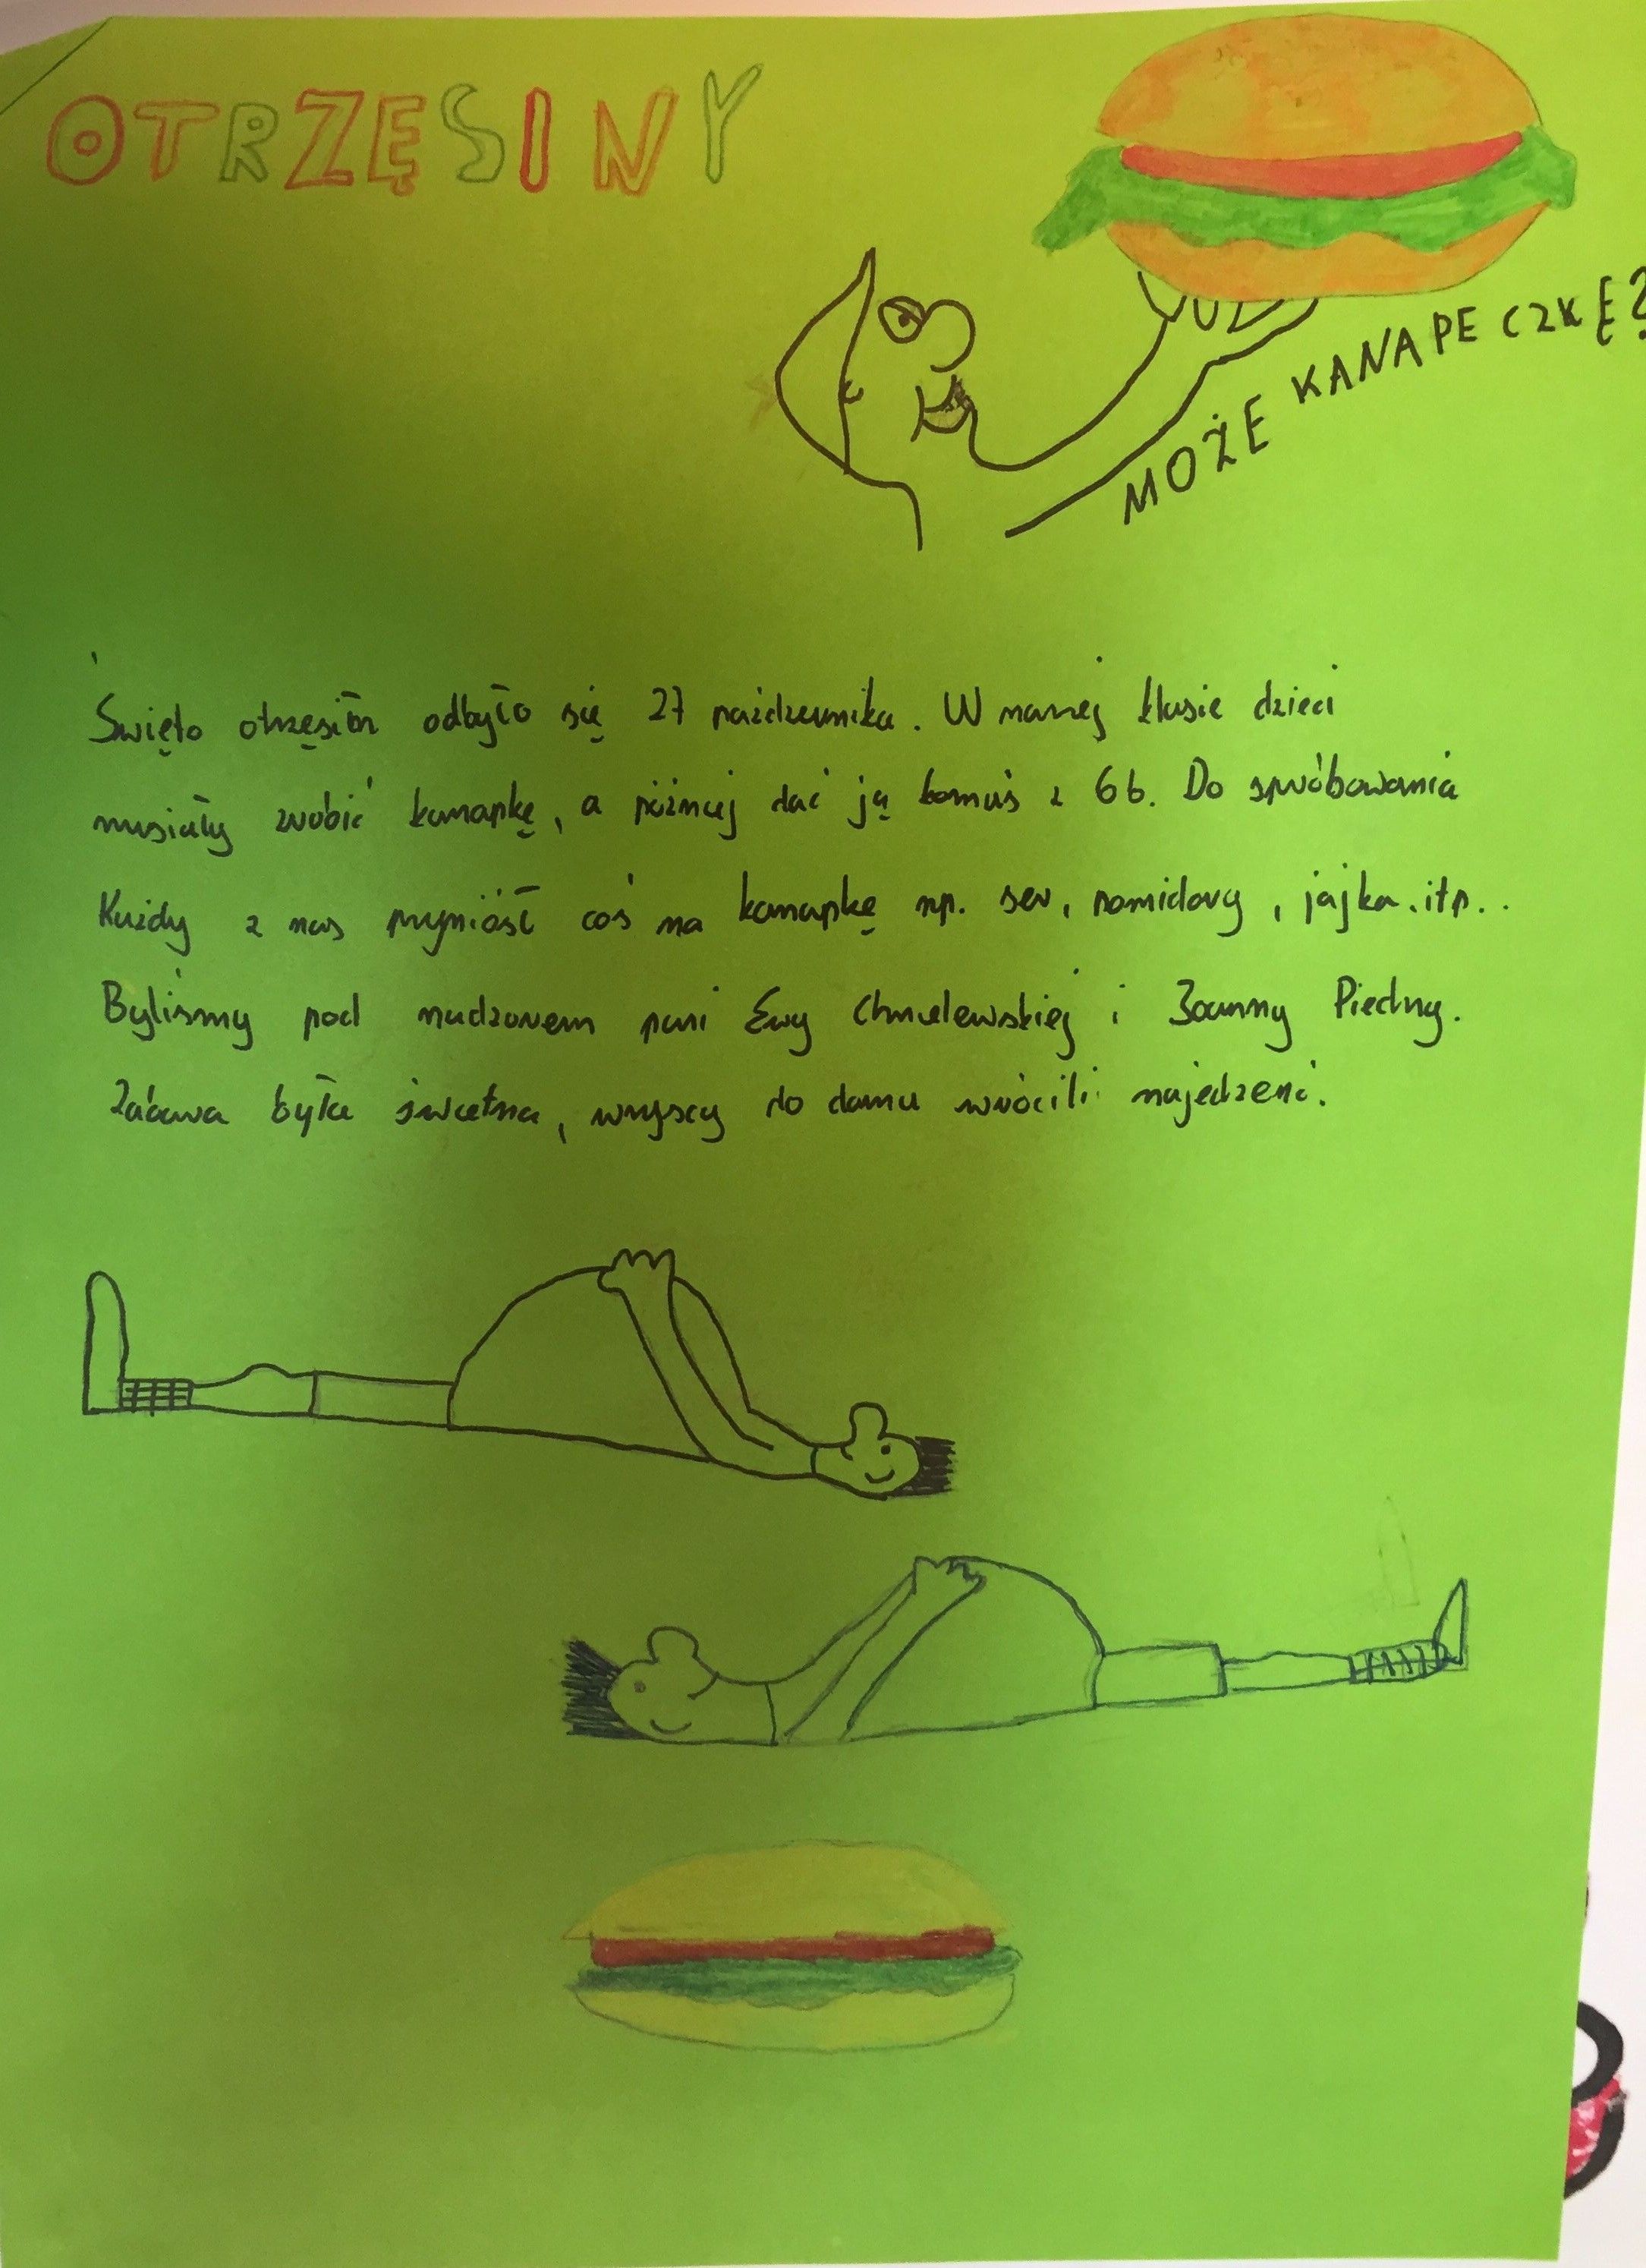 OTRZĘSINY
MOŻE KANAPECZKĘ?
Święto otrzęsin odbyło się 27 października. W naszej klasie dzieci
musiały zrobić kanapkę, a później dać ją komuś z 6b. Do spróbowania
Każdy z nas przyniósł coś na kanapkę np. ser, pomidory, jajka.itp..
Byliśmy pod nadzorem pani Ewy Chmielewskiej i Joanny Piechny.
Zabawa była świetna, wszyscy do domu wrócili najedzeni.